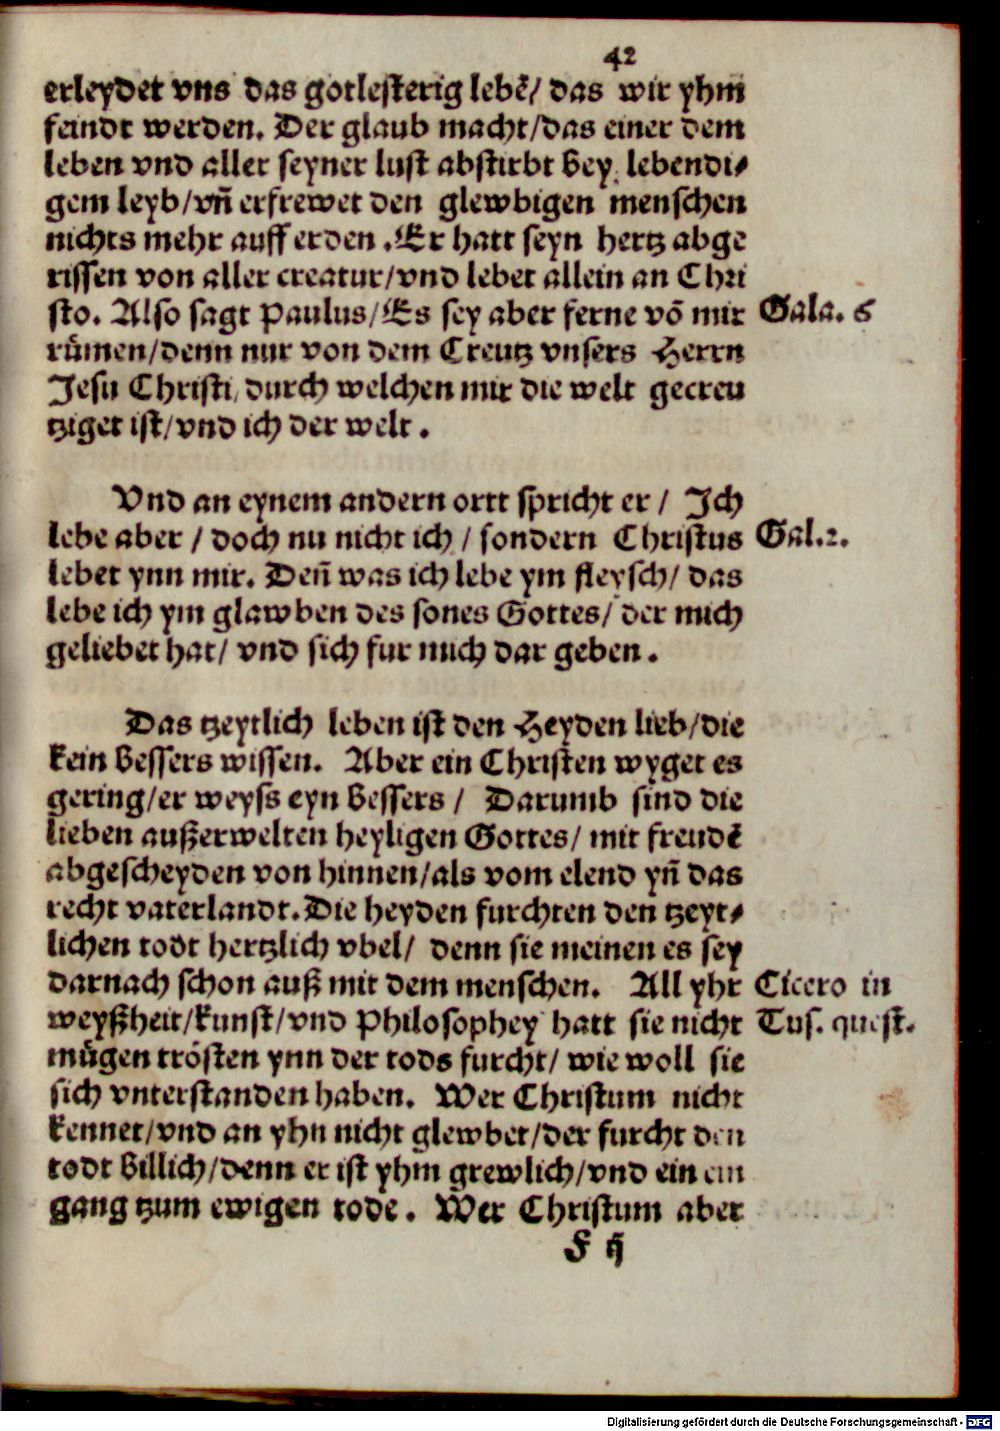 42
erleydet vns das gotlesterig lebẽ/ das wir yhm
feindt werden. Der glaub macht/das einer dem
leben vnd aller seyner lust abstirbt bey lebendi⸗
gem leyb/vñ erfrewet den glewbigen menschen
nichts mehr auff erden .Er hatt seyn hertz abge
rissen von aller creatur/vnd lebet allein an Chri
sto. Also sagt Paulus/Es sey aber ferne võ mir Gala. 6
růmen/denn nur von dem Creutz vnsers Herrn
Jesu Christi, durch welchen mir die welt gecreu
tziget ist/vnd ich der welt .
Vnd an eynem andern ortt spricht er / Jch
lebe aber / doch nu nicht ich / sondern Christus Gal.2.
lebet ynn mir. Deñ was ich lebe ym fleysch/ das
lebe ich ym glawben des sones Gottes/ der mich
geliebet hat/ vnd sich fur mich dar geben .
Das tzeytlich leben ist den Heyden lieb/die
kein bessers wissen. Aber ein Christen wyget es
gering/er weyss eyn bessers / Darumb sind die
lieben außerwelten heyligen Gottes/ mit freudẽ
abgescheyden von hinnen/als vom elend yñ das
recht vaterlandt. Die heyden furchten den tzeyt⸗
lichen todt hertzlich vbel/ denn sie meinen es sey
darnach schon auß mit dem menschen. All yhr Cicero in
weyßheit/kunst/vnd Philosophey hatt sie nicht Tus. quest.
můgen trósten ynn der tods furcht/ wie woll sie
sich vnterstanden haben. Wer Christum nicht
kennet/vnd an yhn nicht glewbet/der furcht den
todt billich/denn er ist yhm grewlich/vnd ein ein
gang tzum ewigen tode . Wer Christum aber
F ij
Digitalisierung gefördert durch die Deutsche Forschungsgemeinschaft - DFG